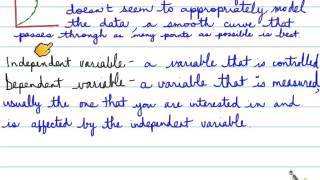 doesn't seem to appropriately model
the data, a smooth curve that
passes through as many points as possible is best.
Independent variable - a variable that is controlled
Dependent variable - a variable that is measured,
usually the one that you are interested in and
is affected by the independent variable.